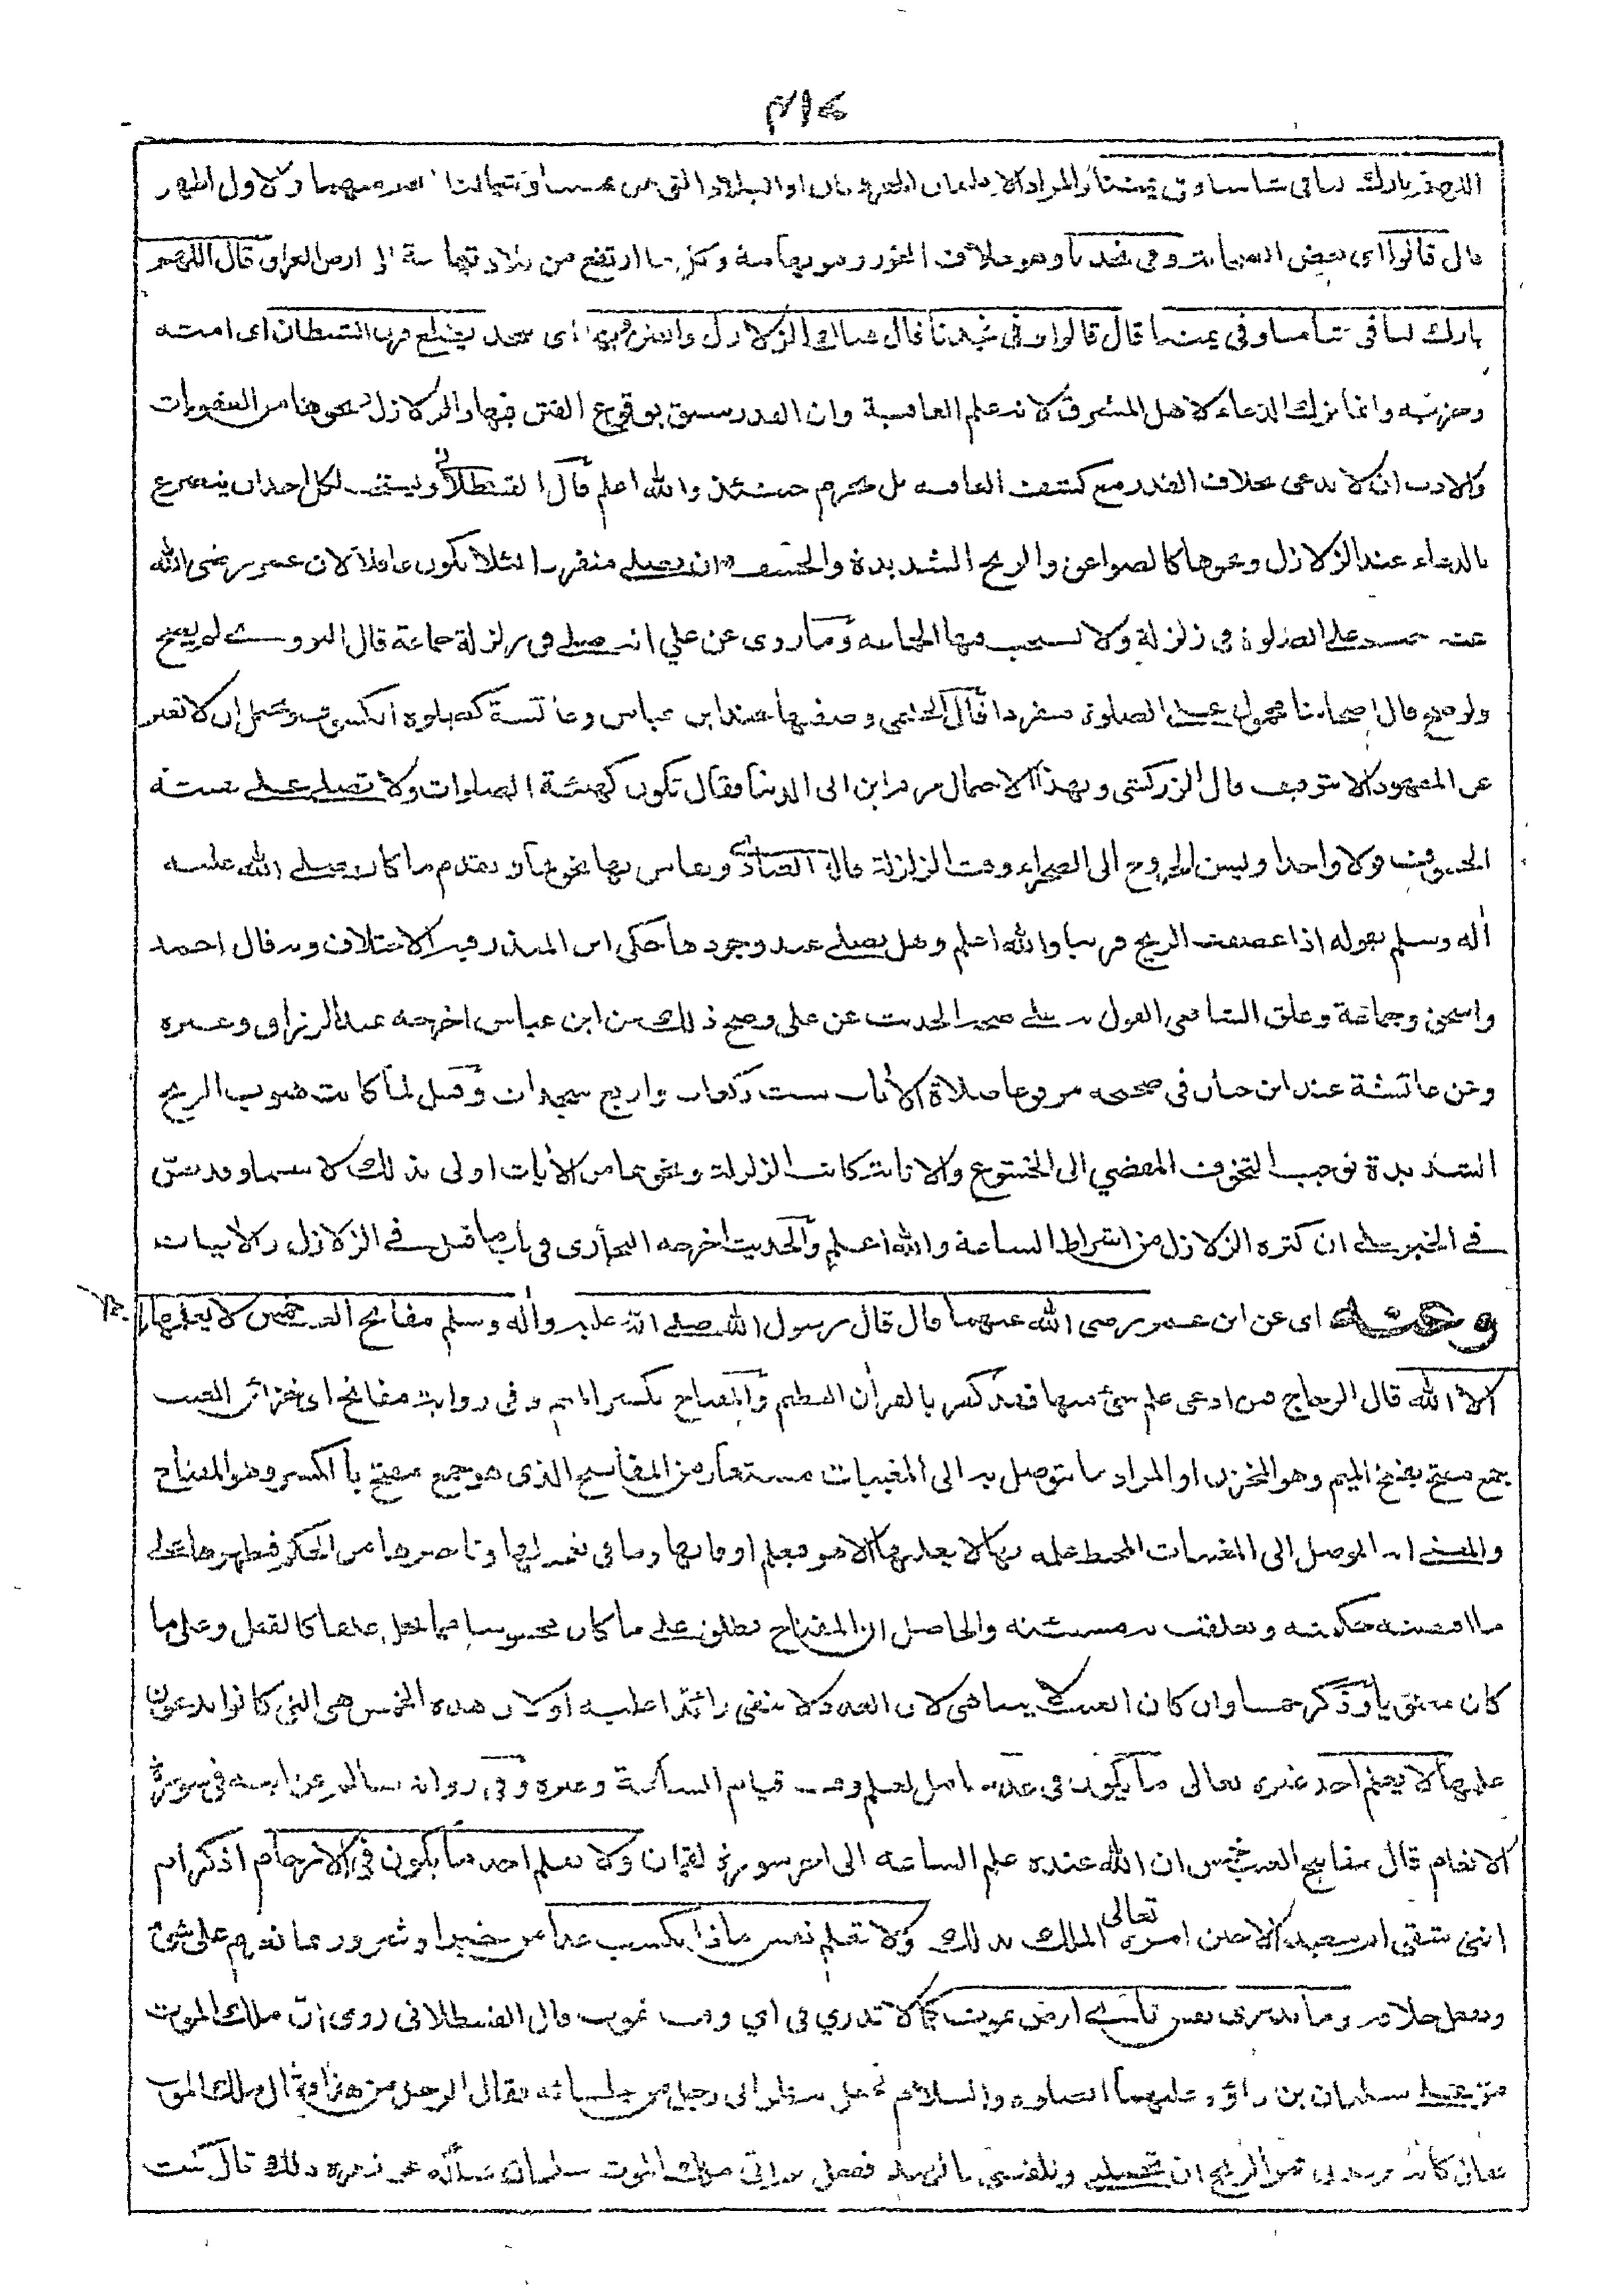 بارك لنا في شامنا وفي يمننا والمراد الاقليمان المعروفان او البلاد التي عن والاول اظهر
قال قالوا اى بعض الصحابة وفي نجدنا وهو خلاف الغور وهو تهامة وكل ما ارتفع من بلاد تهامة الى ارض العراق قال اللهم
بارك لنا في شامنا وفي يمننا قال قالوا وفي نجدنا قال هناك الزلازل والفتن وبها اى بنجد يطلع قرن الشيطان اى امته
وحزبه وانما ترك الدعاء لاهل المشرق لانه علم العاقبة وان القدر سبق بوقوع الفتن فيها والزلازل ونحوها من العقوبات
والادب ان لا يدعى بخلاف القدر مع كشف العاقبة بل يحرم حينئذ والله اعلم قال القسطلانى ويستحب لكل احد ان يتضرع
بالدعاء عند الزلازل ونحوها كالصواعق والريح الشديدة والخسف وان يصلى منفردا لئلا يكون غافلا لان عمر رضى الله
عنه حث على الصلوة فى زلزلة ولا يستحب فيها الجماعة وما روى عن علي انه صلى فى زلزلة جماعة قال النووى لم يصح
ولو صح قال اصحابنا محمول على الصلوة منفردا قال الحليمى وصفتها عند ابن عباس وعائشة كصلوة الكسوف ويحتمل ان لا تغير
عن المعهود الا بتوقيف قال الزركشى وبهذا الاحتمال جزم ابن ابى الدنيا فقال تكون كهيئة الصلوات ولا تصلى على هيئة
الخسوف قولا واحدا وليس الخروج الى الصحراء وقت الزلزلة قال العبادى ويقاس بها نحوها وتقدم ما كان صلى الله عليه
وآله وسلم يقوله اذا عصفت الريح قريبا والله اعلم وهل يصلى عند وجودها حكى ابن المنذر فيه الاختلاف وبه قال احمد
واسحق وجماعة وعلق الشافعى القول به على صحة الحديث عن على وصح ذلك عن ابن عباس اخرجه عبد الرزاق وغيره
وعن عائشة عند ابن حبان فى صحيحه مرفوعا صلاة الآيات ست ركعات واربع سجدات وقيل لما كانت هبوب الريح
الشديدة توجب التخوف المفضي الى الخشوع والانابة كانت الزلزلة ونحوها من الآيات اولى بذلك لا سيما وقد نص
فى الخبر على ان كثرة الزلازل من اشراط الساعة والله اعلم والحديث اخرجه البخارى فى باب ما قيل فى الزلازل والآيات
وعنه اى عن ابن عمر رضى الله عنهما قال قال رسول الله صلى الله عليه وآله وسلم مفاتح الغيب خمس لا يعلمها
الا الله قال الزجاج فمن ادعى علم شئ منها فقد كفر بالقرآن العظيم والمفتاح بكسر الميم وفى رواية مفاتح اى خزائن الغيب
جمع مفتح بفتح الميم وهو المخزن او المراد ما يتوصل به الى المغيبات مستعار من المفاتيح الذى هو جمع مفتح بالكسر وهو المفتاح
والمعنى انه الموصل الى المغيبات المحيط علمه بها لا يعلمها الا هو فيعلم اوقاتها وما فى تعجيلها وتاخيرها من الحكم فيظهرها على
ما اقتضته حكمته وتعلقت به مشيئته والحاصل ان المفتاح يطلق على ما كان محسوسا مما يحل غلقا كالقفل وعلى ما
كان معنويا وذكر خمسا وان كان الغيب لا يتناهى لان العدد لا ينفى زائدا عليه او لان هذه الخمس هى التى كانوا يدعون
علمها لا يعلم احد غيره تعالى ما يكون فى غد شامل لعلم وقت قيام الساعة وغيره وفى رواية سالم عن ابيه فى سورة
الانعام قال مفاتيح الغيب خمس ان الله عنده علم الساعة الى آخر سورة لقمان ولا يعلم احد ما يكون فى الارحام اذكر ام
انثى شقى ام سعيد الا حين امره تعالى الملك بذلك ولا تعلم نفس ماذا تكسب غدا من خير او شر وربما تعزم على شئ
وتفعل خلافه وما تدرى نفس باى ارض تموت كما لا تدري فى اي وقت تموت قال القسطلانى روى ان ملك الموت
مر على سليمان بن داؤد عليهما الصلوة والسلام فجعل ينظر الى رجل من جلسائه فقال الرجل من هذا قال ملك الموت
فقال كانه يريدنى فمر الريح ان تحملنى وتلقينى بالهند ففعل ثم اتى ملك الموت سليمان فسأله عن نظره ذلك قال كنت